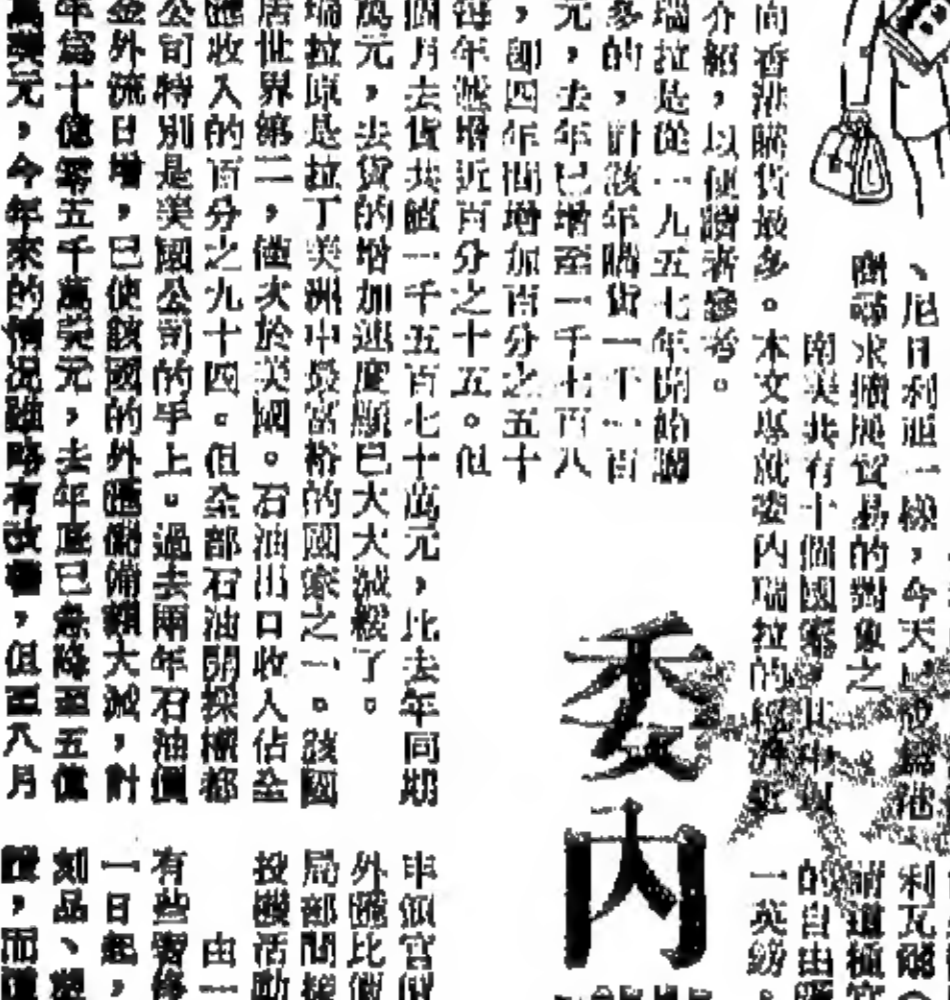 、尼日利亞一樣,今天已成爲港
商尋求擴展貿易的對象之
南美共有十個國家,其中以
向香港購貨最多。本文專就委內瑞拉的經濟
介紹,以便讀者參考。
瑞拉是從一九五七年開始購
多的,計該年購貨一千一百
元,去年已增至一千七百八
,卽四年間增加百分之五十
每年遞增近百分之十五。但
個月去貨共値一千五百七十萬元,比去年同期
萬元,去貨的增加速度顯已大大減緩了。
瑞拉原是拉丁美洲中最富裕的國家之一。該國
居世界第二,僅次於美國。石油出口收入佔全
匯收入的百分之九十四。但全部石油開採權都
公司特別是美國公司的手上。過去兩年石油價
金外流日增,已使該國的外匯儲備額大減,計
年爲十億零五千萬美元,去年底已急降至五億
萬美元,今年來的情况雖略有改善,但至八月
委內
利瓦爾
的自由匯
一英鎊。
申領官價
外匯比價
局部間接
投機活動
由一
有些奢侈
一日起,
刻品、塑
,而